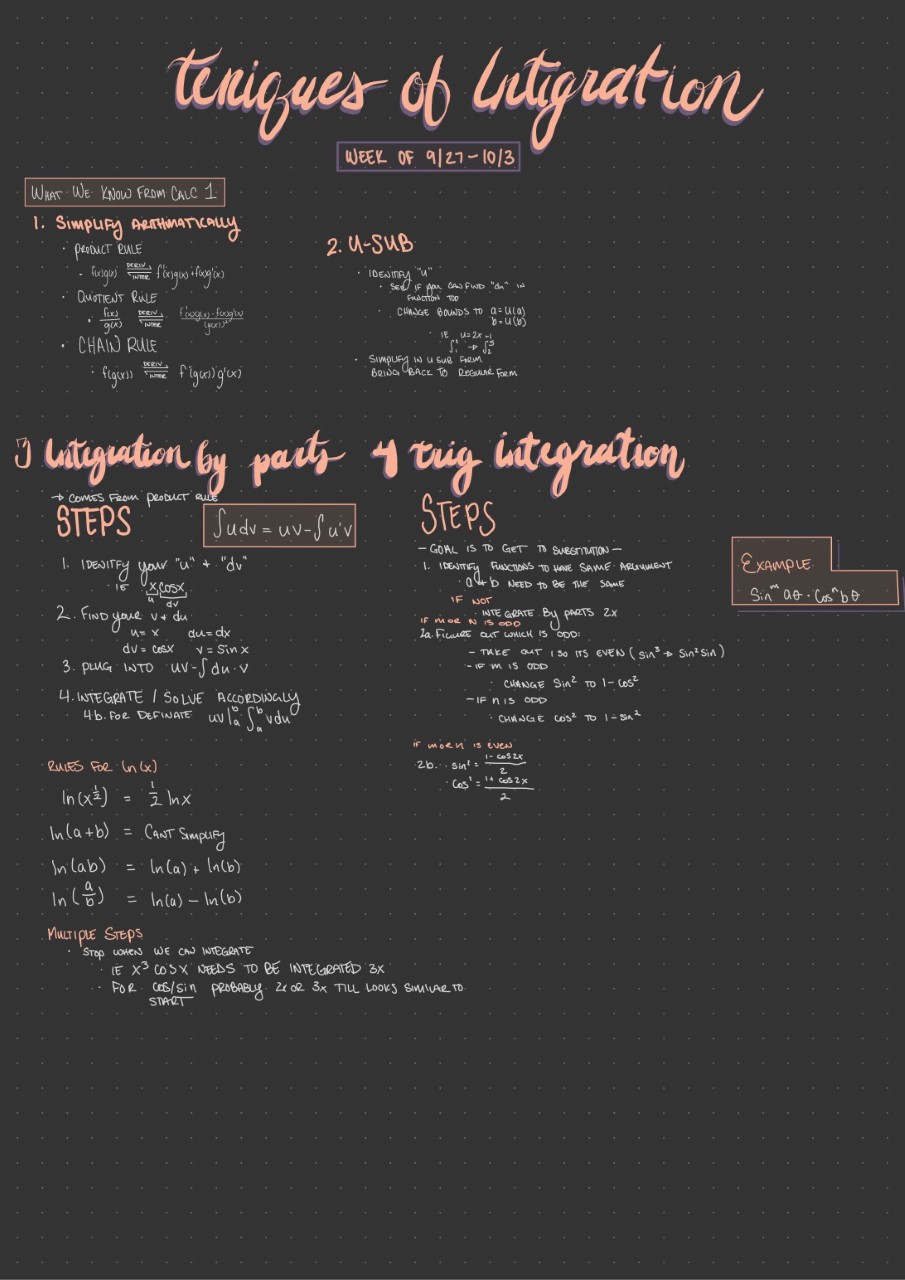 Teniques of Intigration
WEEK OF 9/27-10/3
WHAT WE KNOW FROM CALC 1
1. SIMPLIFY ARITHMATICALLY
· PRODUCT RULE
· f(x)g(x) DERIV→/INTER f'(x)g(x)+f(x)g'(x)
· QUOTIENT RULE
· f(x)/g(x) DERIV→/INTER
· CHAIN RULE
· f(g(x)) DERIV→/INTER f'(g(x))g'(x)
2. U-SUB
· IDENTIFY "U"
· SEE IF you CAN FIND "du" IN
FUNCTION TOO
· CHANGE BOUNDS TO a=U(a)
b=U(b)
· IE U=2x-1
· SIMPLIFY IN U SUB FORM
BRING BACK TO REGULAR FORM
3 Integration by parts
→ COMES FROM PRODUCT RULE
STEPS
∫udv = uv-∫u'v
1. IDENTIFY your "u" + "dv"
· IE xcosx
u dv
2. FIND your v + du
u=x du=dx
dv=cosx v=sinx
3. PLUG INTO uv-∫du·v
4. INTEGRATE / SOLVE ACCORDINGLY
4b. FOR DEFINATE uv|ₐᵇ ∫ₐᵇ vdu
RULES FOR ln(x)
ln(x^½) = ½ lnx
ln(a+b) = CANT SIMPLIFY
ln(ab) = ln(a) + ln(b)
ln(a/b) = ln(a) - ln(b)
MULTIPLE STEPS
· STOP WHEN WE CAN INTEGRATE
· IE x³ cosx NEEDS TO BE INTEGRATED 3x
· FOR cos/sin PROBABLY 2x OR 3x TILL LOOKS SIMILAR TO
START
4 trig integration
STEPS
- GOAL IS TO GET TO SUBSTITUTION -
1. IDENTIFY FUNCTIONS TO HAVE SAME ARGUMENT
· a + b NEED TO BE THE SAME
IF NOT
· INTEGRATE By PARTS 2x
IF M OR N IS ODD
2a. FIGURE OUT WHICH IS ODD:
- TAKE OUT 1 SO ITS EVEN (sin³ → sin²sin)
- IF M IS ODD
· CHANGE sin² TO 1-cos²
- IF n IS ODD
· CHANGE cos² TO 1-sin²
IF M OR N IS EVEN
2b. · sin² = 1-cos2x/2
· cos² = 1+cos2x/2
EXAMPLE
Sinᵐ aθ · Cosⁿ bθ